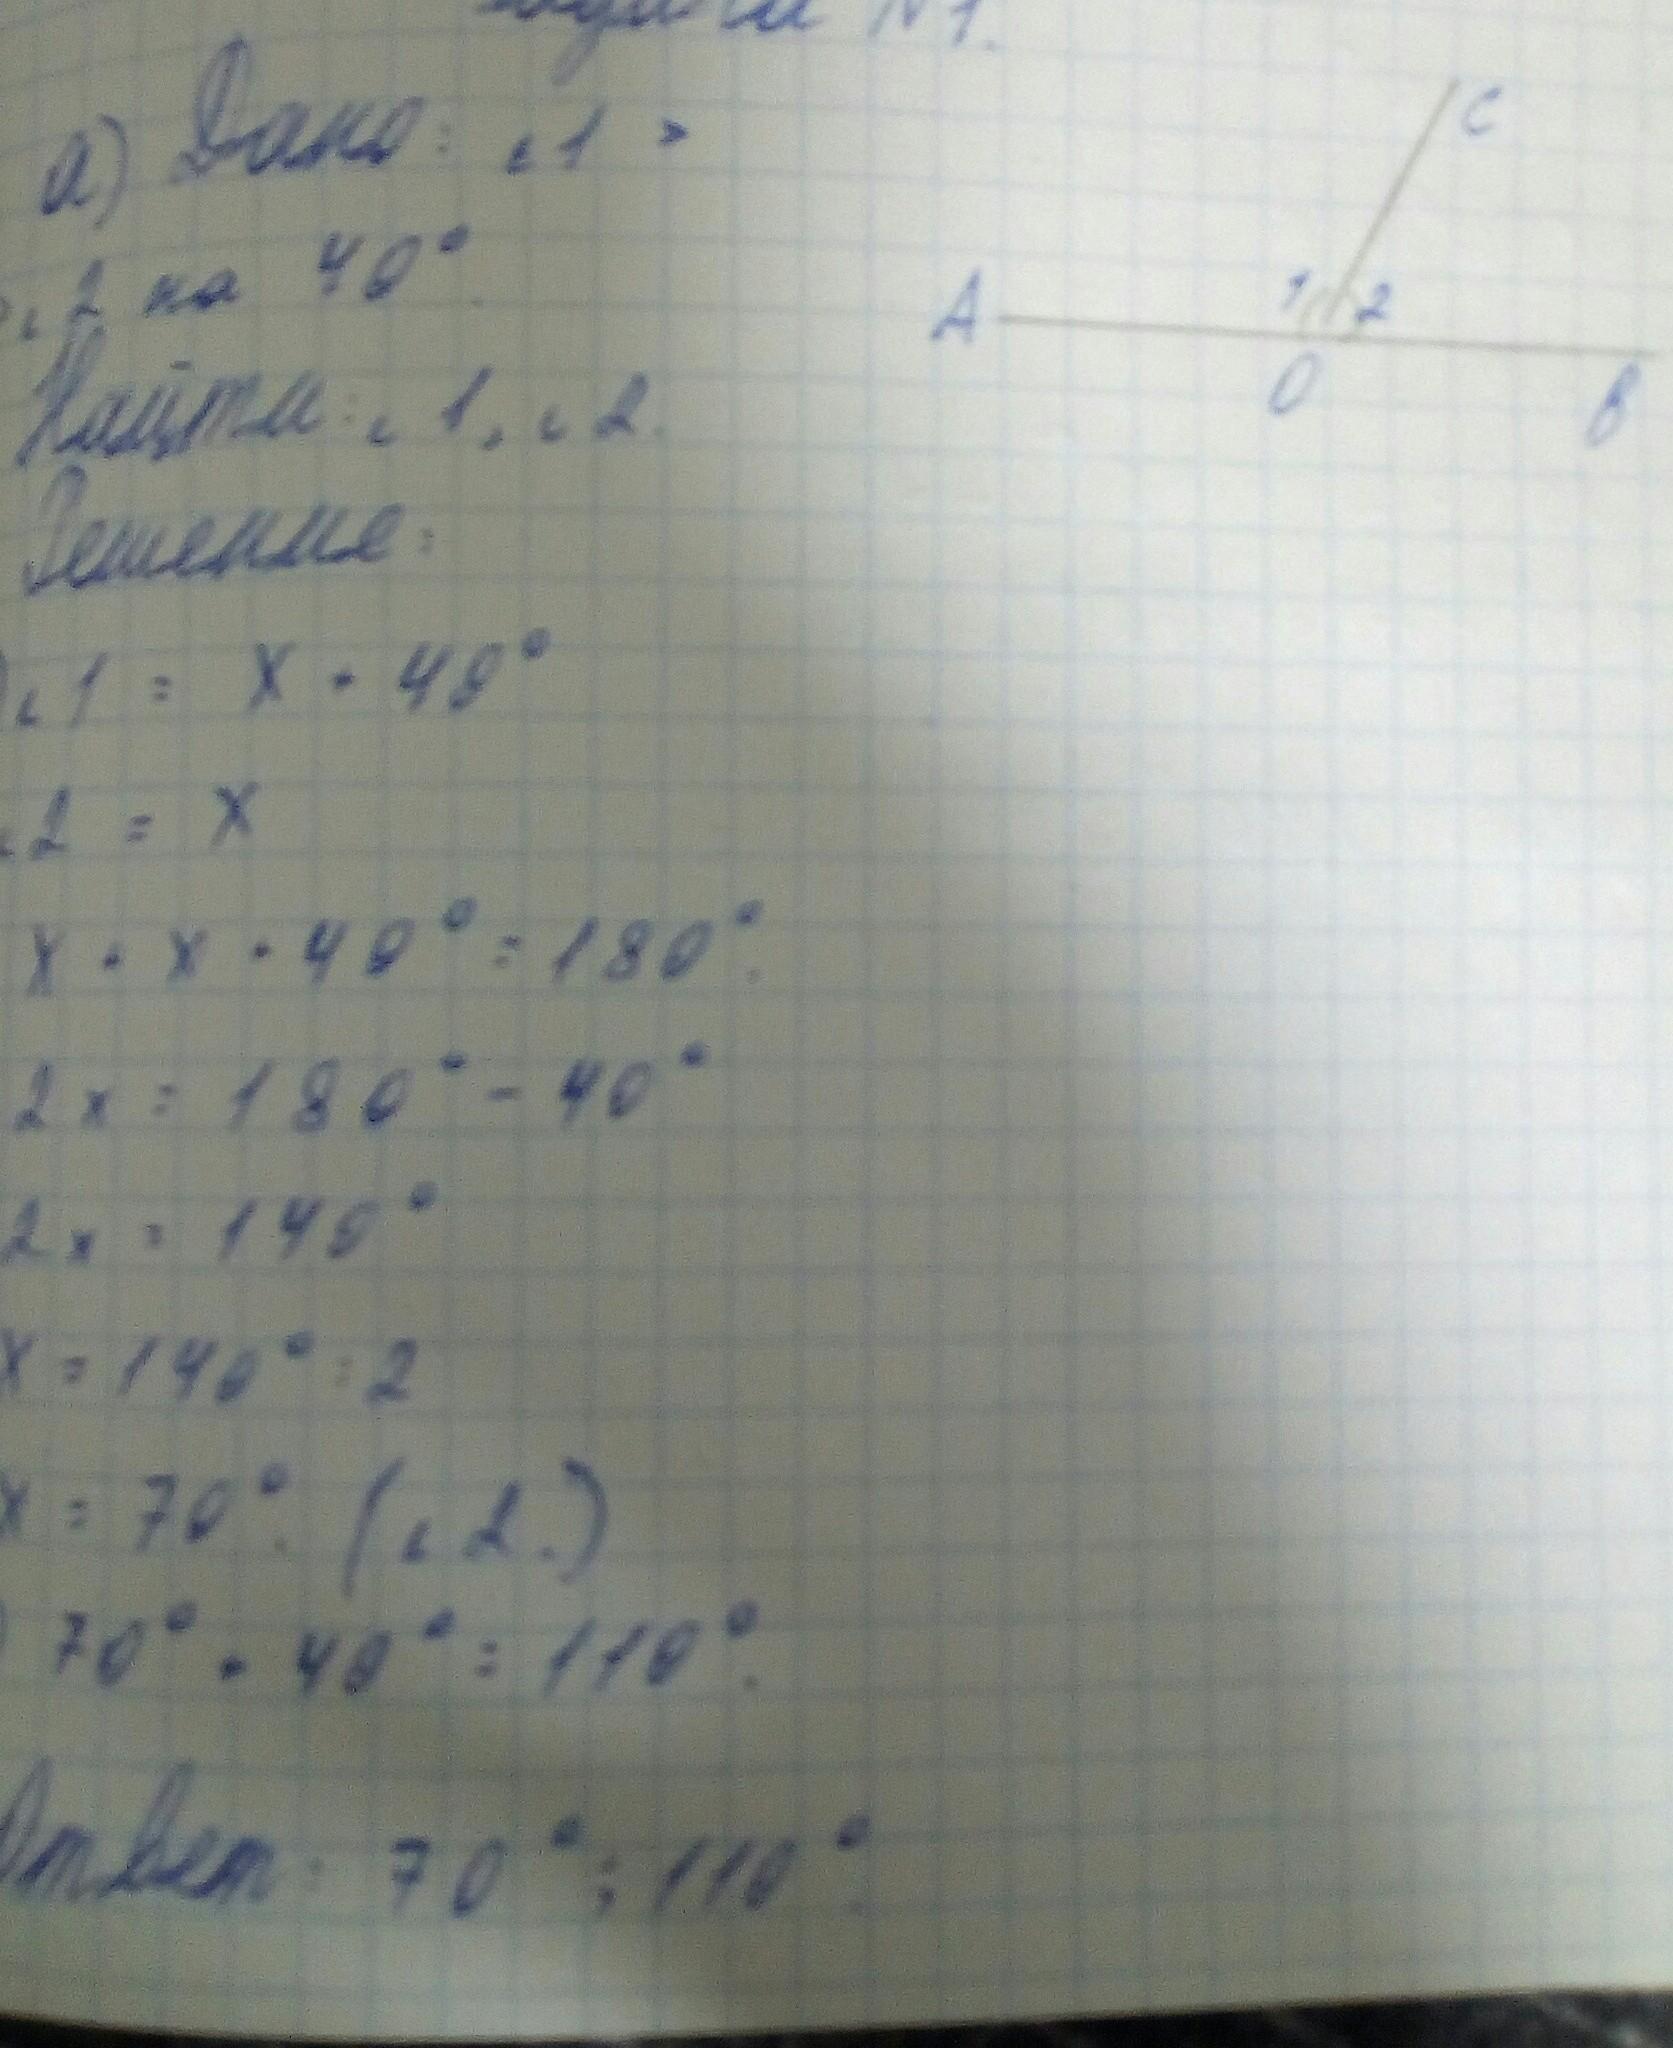 N1.
а) Дано: ∠1 >
> ∠2 на 40°.
Найти: ∠1, ∠2.
Решение:
) ∠1 = x + 40°
∠2 = x
x + x + 40° = 180°.
2x = 180° - 40°
2x = 140°
x = 140° : 2
x = 70°. (∠2.)
) 70° + 40° = 110°.
Ответ: 70°; 110°.
C
A
1
2
O
B